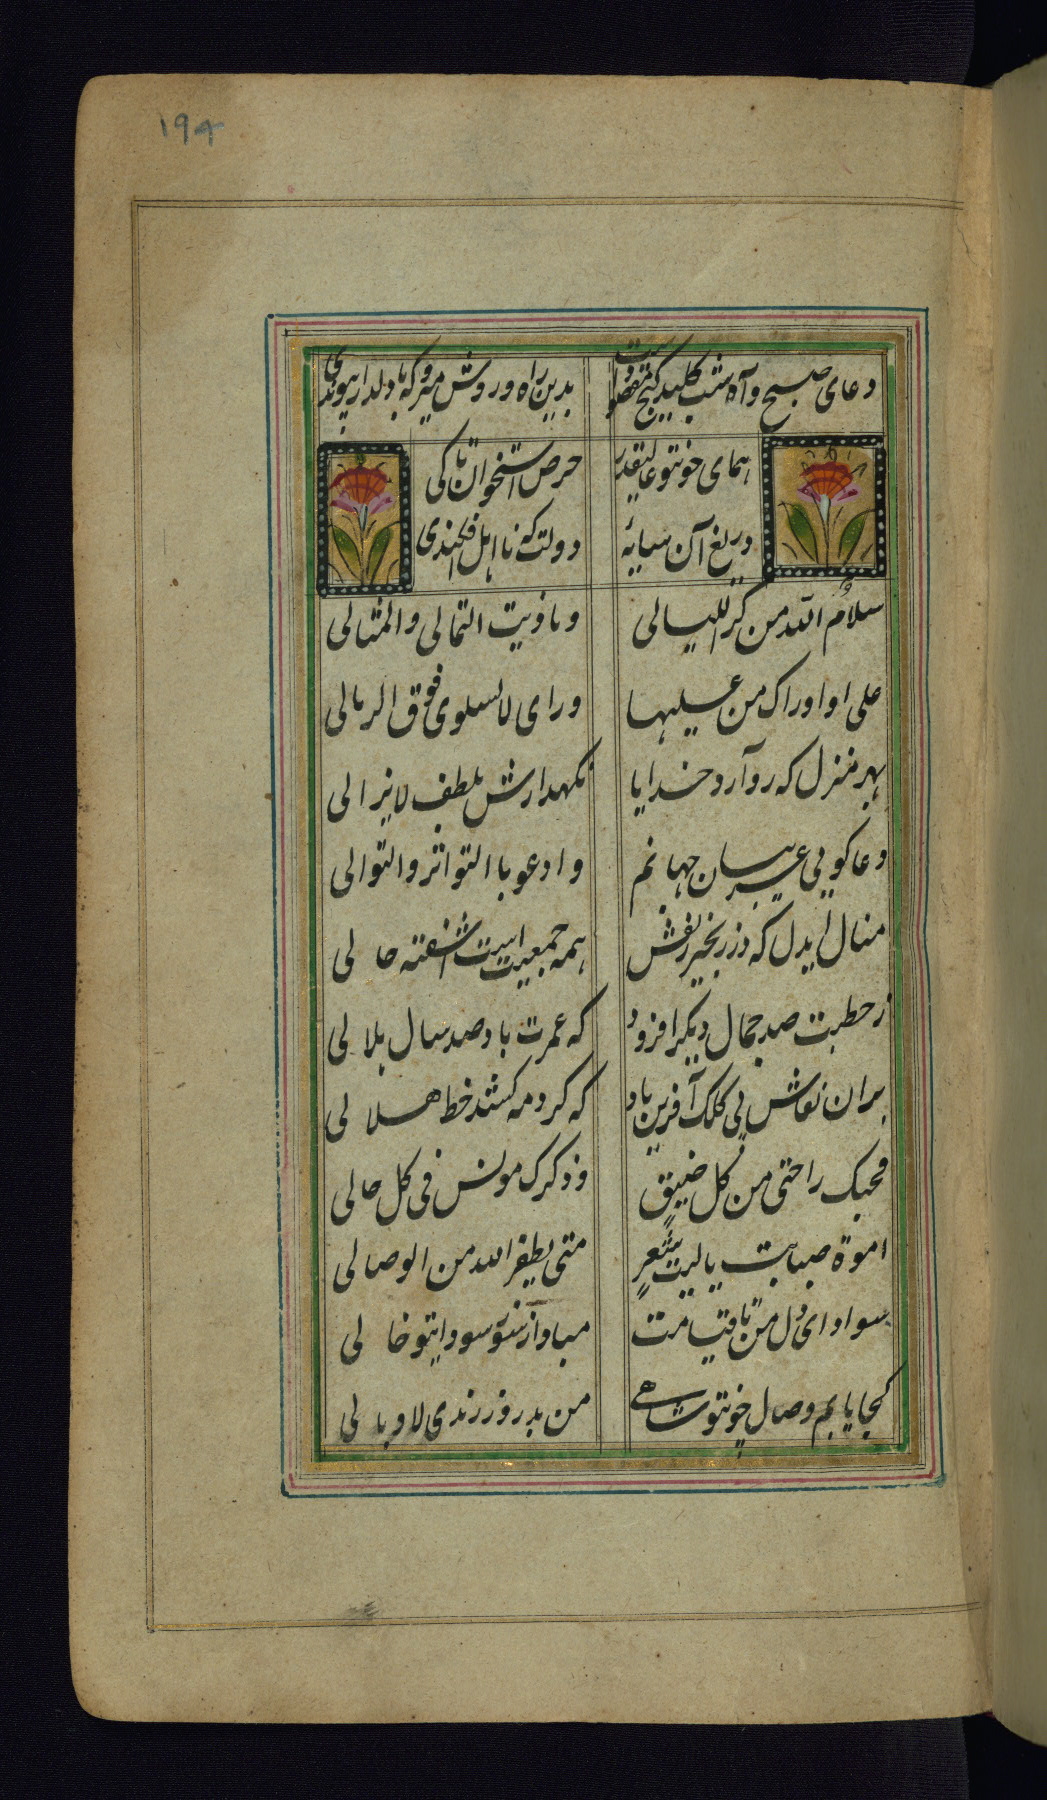 ۱۹۴
دعای صبح و آه شب کلید گنج مقصود است
بدین راه و روش میرو که با دلدار پیوندی
همای خونتو عالیقدر
حرص استخوان تا کی
دریغ آن سایهٔ
دولت که نا اهل افکندی
سلام الله من کر اللیالی
و ماویت المثالی والمثالی
علی او اوراک من علیها
ورای لا لسلوی فوق الرمالی
بهر منزل که رو آرد خدایا
نکهدارش بلطف لایزالی
دعا کویی غریبان جهانم
وادعو با التواتر والتوالی
منال ایدل که در زنجیر زلفش
همه جمعیت است اشفته حالی
زحطبت صد جمال دیکر افزود
که عمرت باد صد سال بلالی
بران نقاش پی کلک آفرین باد
که کرد مه کشد خط هلالی
فحبک راحتی من کل ضیق
و ذکرک مونس فی کل حالی
اموة صبابت یا لیت شعر
متی یطفر الله من الوصالی
سواد ای دل من تا قیامت
مباد از شور سودایتو خالی
کجا یابم وصال چونتو شاهی
من بدروز رندی لاوبالی